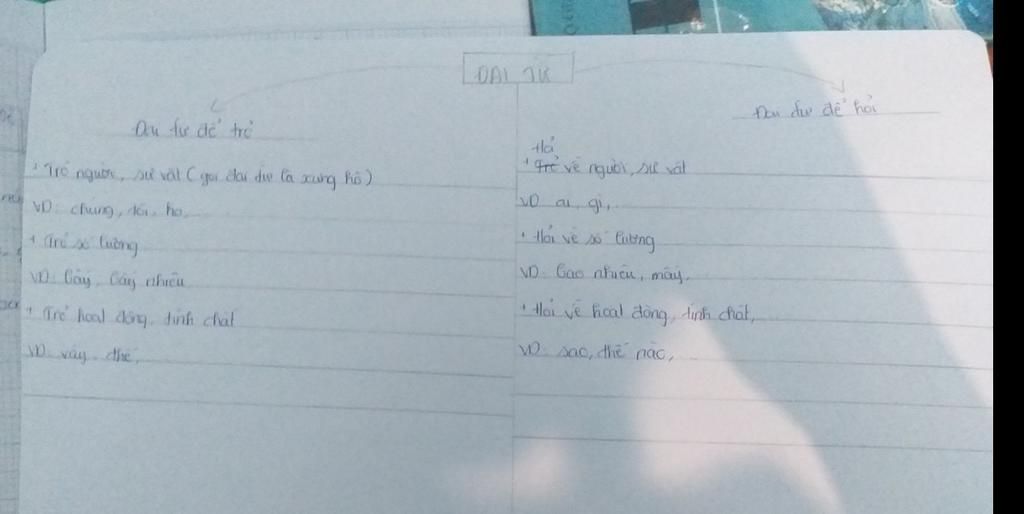 ĐẠI TỪ
Đại từ để trỏ
+ Trỏ người, sự vật (gọi đại từ là xưng hô)
VD: chúng, tôi, họ,
+ Trỏ số lượng
VD: Bấy, bấy nhiêu
+ Trỏ hoạt động, tính chất
VD: vậy, thế,
Đại từ để hỏi
Hỏi
+ Trỏ về người, sự vật
VD ai, gì,..
+ Hỏi về số lượng
VD: Bao nhiêu, mấy,
+ Hỏi về hoạt động, tính chất,
VD: sao, thế nào,..